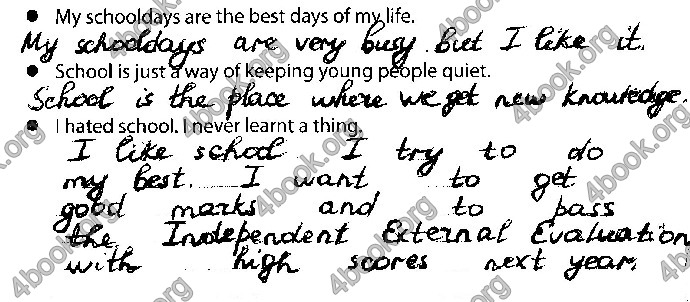 ● My schooldays are the best days of my life.
My schooldays are very busy but I like it.
● School is just a way of keeping young people quiet.
School is the place where we get new knowledge.
● I hated school. I never learnt a thing.
I like school I try to do
my best. I want to get
good marks and to pass
the Independent External Evaluation
with high scores next year.
4book.org
4book.org
4book.org
4book.org
4book.org
4book.org
4book.org
4book.org